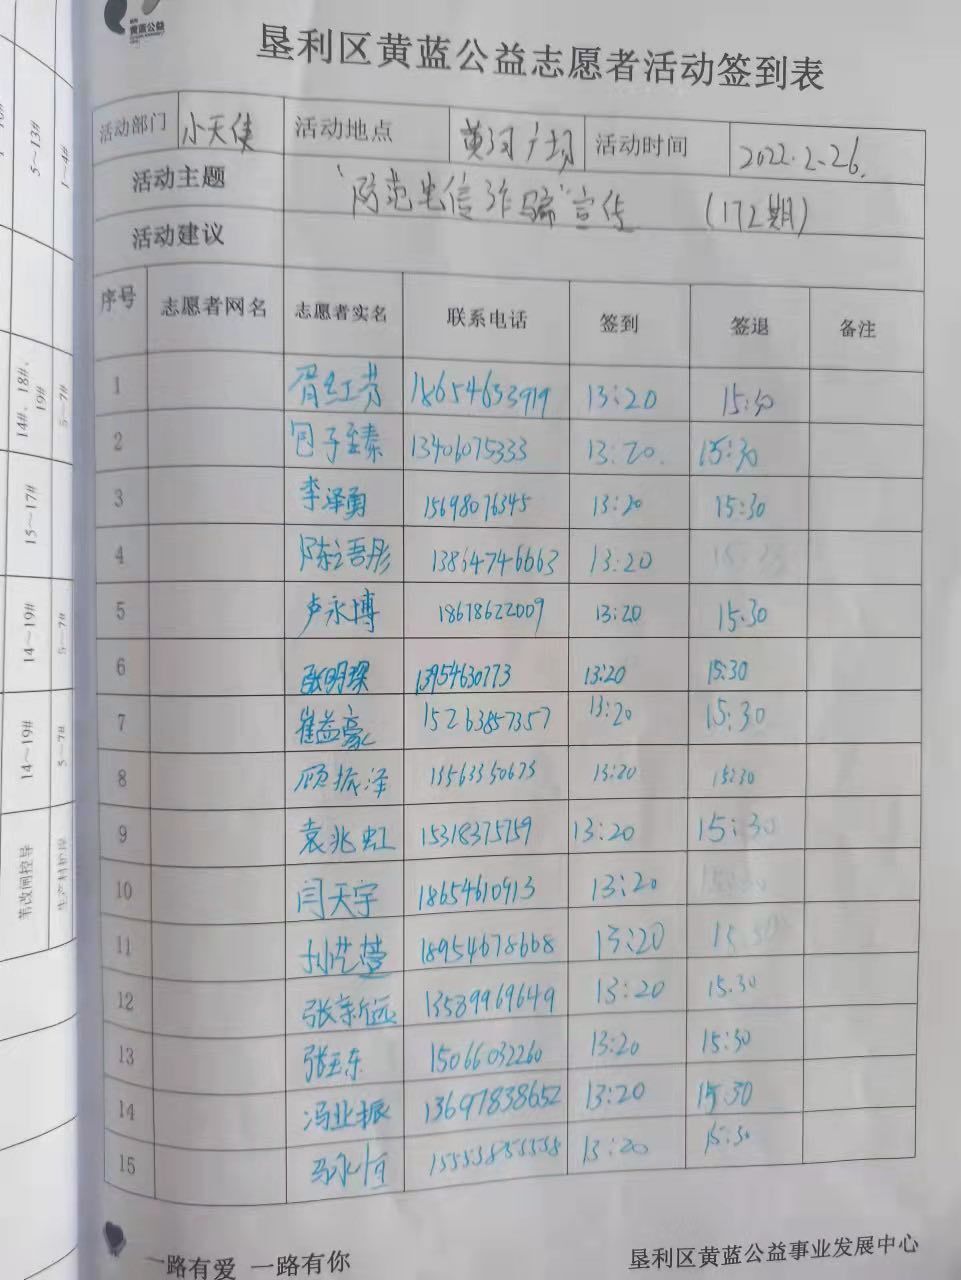 黄蓝公益
垦利区黄蓝公益志愿者活动签到表
活动部门 小天使 活动地点 黄河广场 活动时间 2022.2.26.
活动主题 "防范电信诈骗"宣传 (172期)
活动建议
序号 志愿者网名 志愿者实名 联系电话 签到 签退 备注
1 胥红芬 18654633919 13:20 15:30
2 包子臻 13406075333 13:20. 15:30
3 李泽勇 15698076345 13:20 15:30
4 陈语彤 13864746663 13:20
5 卢永博 18678622009 13:20 15.30
6 张明琛 13954630773 13:20 15:30
7 崔益豪 15263857357 13:20 15:30
8 顾振泽 13563350673 13:20 15:30
9 袁兆虹 15318375759 13:20 15:30
10 闫天宇 18654610913 13:20
11 孙艺萱 18954678668 13:20 15:30
12 张新远 13589969649 13:20 15.30
13 张玉东 15066032260 13:20 15:30
14 冯业振 13697838652 13:20 15:30
15 马永恒 15553855558 13:20 15:30
一路有爱 一路有你 垦利区黄蓝公益事业发展中心
5~13# 1~4#
14#、18#、19# 5~7#
15~17#
14~19# 5~7#
14~19# 5~7#
苇改闸控导